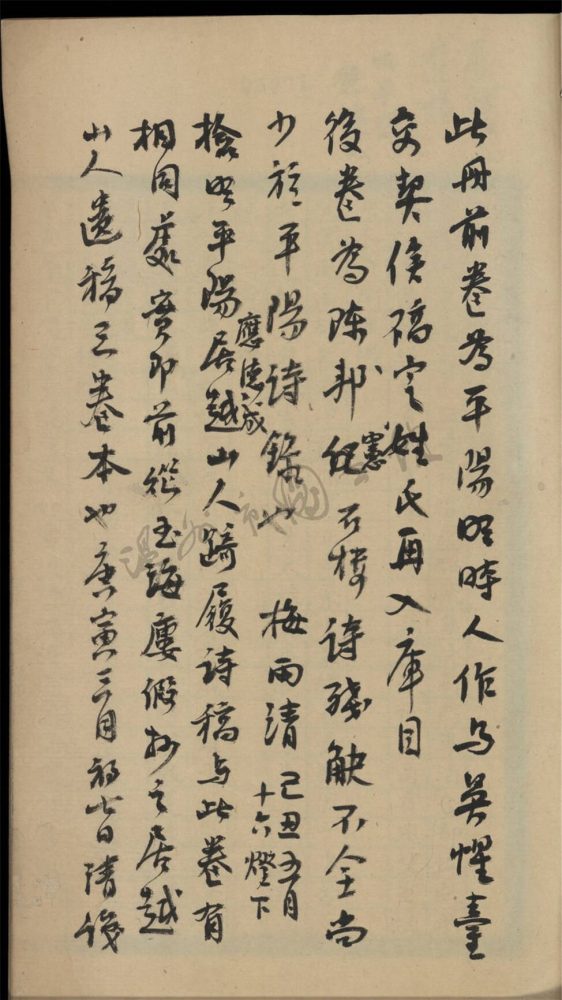 此冊前卷為平陽明時人作与吳懼臺
交契俟確定姓氏再入庫目
後卷為陳邦憲石樓詩殘觖不全尚
少於平陽詩錄也 梅雨清 己丑五月
十六燈下
檢明平陽居越山人詩履詩稿与此卷有
應德成
相同處實即前從玉海廔假抄之居越
山人遺稿三卷本也庚寅三月初七日清識